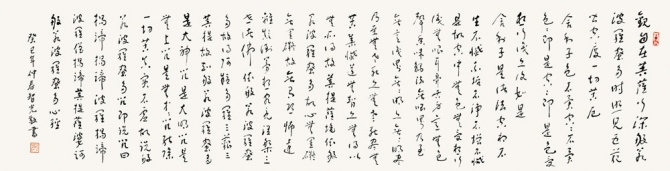 觀自在菩薩行深般若
波羅蜜多時照見五蘊
皆空度一切苦厄
舍利子色不異空空不異
色色即是空空即是色受
想行識亦復如是
舍利子是諸法空相不
生不滅不垢不淨不增不減
是故空中無色無受想行
識無眼耳鼻舌身意無色
聲香味觸法無眼界乃至
無意識界無無明亦無無明盡
乃至無老死亦無老死盡無
苦集滅道無智亦無得以
無所得故菩提薩埵依般
若波羅蜜多故心無罣礙
無罣礙故無有恐怖遠
離顛倒夢想究竟涅槃三
世諸佛依般若波羅蜜
多故得阿耨多羅三藐三
菩提故知般若波羅蜜多
是大神咒是大明咒是
無上咒是無等等咒能除
一切苦真實不虛故說般
若波羅蜜多咒即說咒曰
揭諦揭諦波羅揭諦
波羅僧揭諦菩提薩婆訶
般若波羅蜜多心經
癸巳年仲春敬書